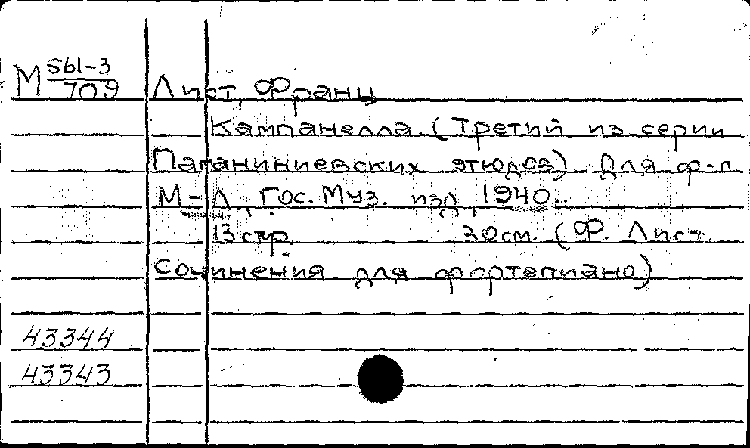 М 561-3/709 Лист, Франц
Кампанелла (Третий из серии
Паганиниевских этюдов) Для ф-п.
М-Л, Гос. Муз. изд, 1940.
13 стр. 30см. (Ф. Лист.
Сочинения для фортепиано)
43344
43343